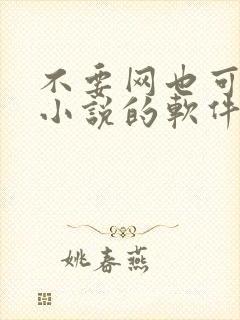 不要网也可
小说的軟件
姚春燕